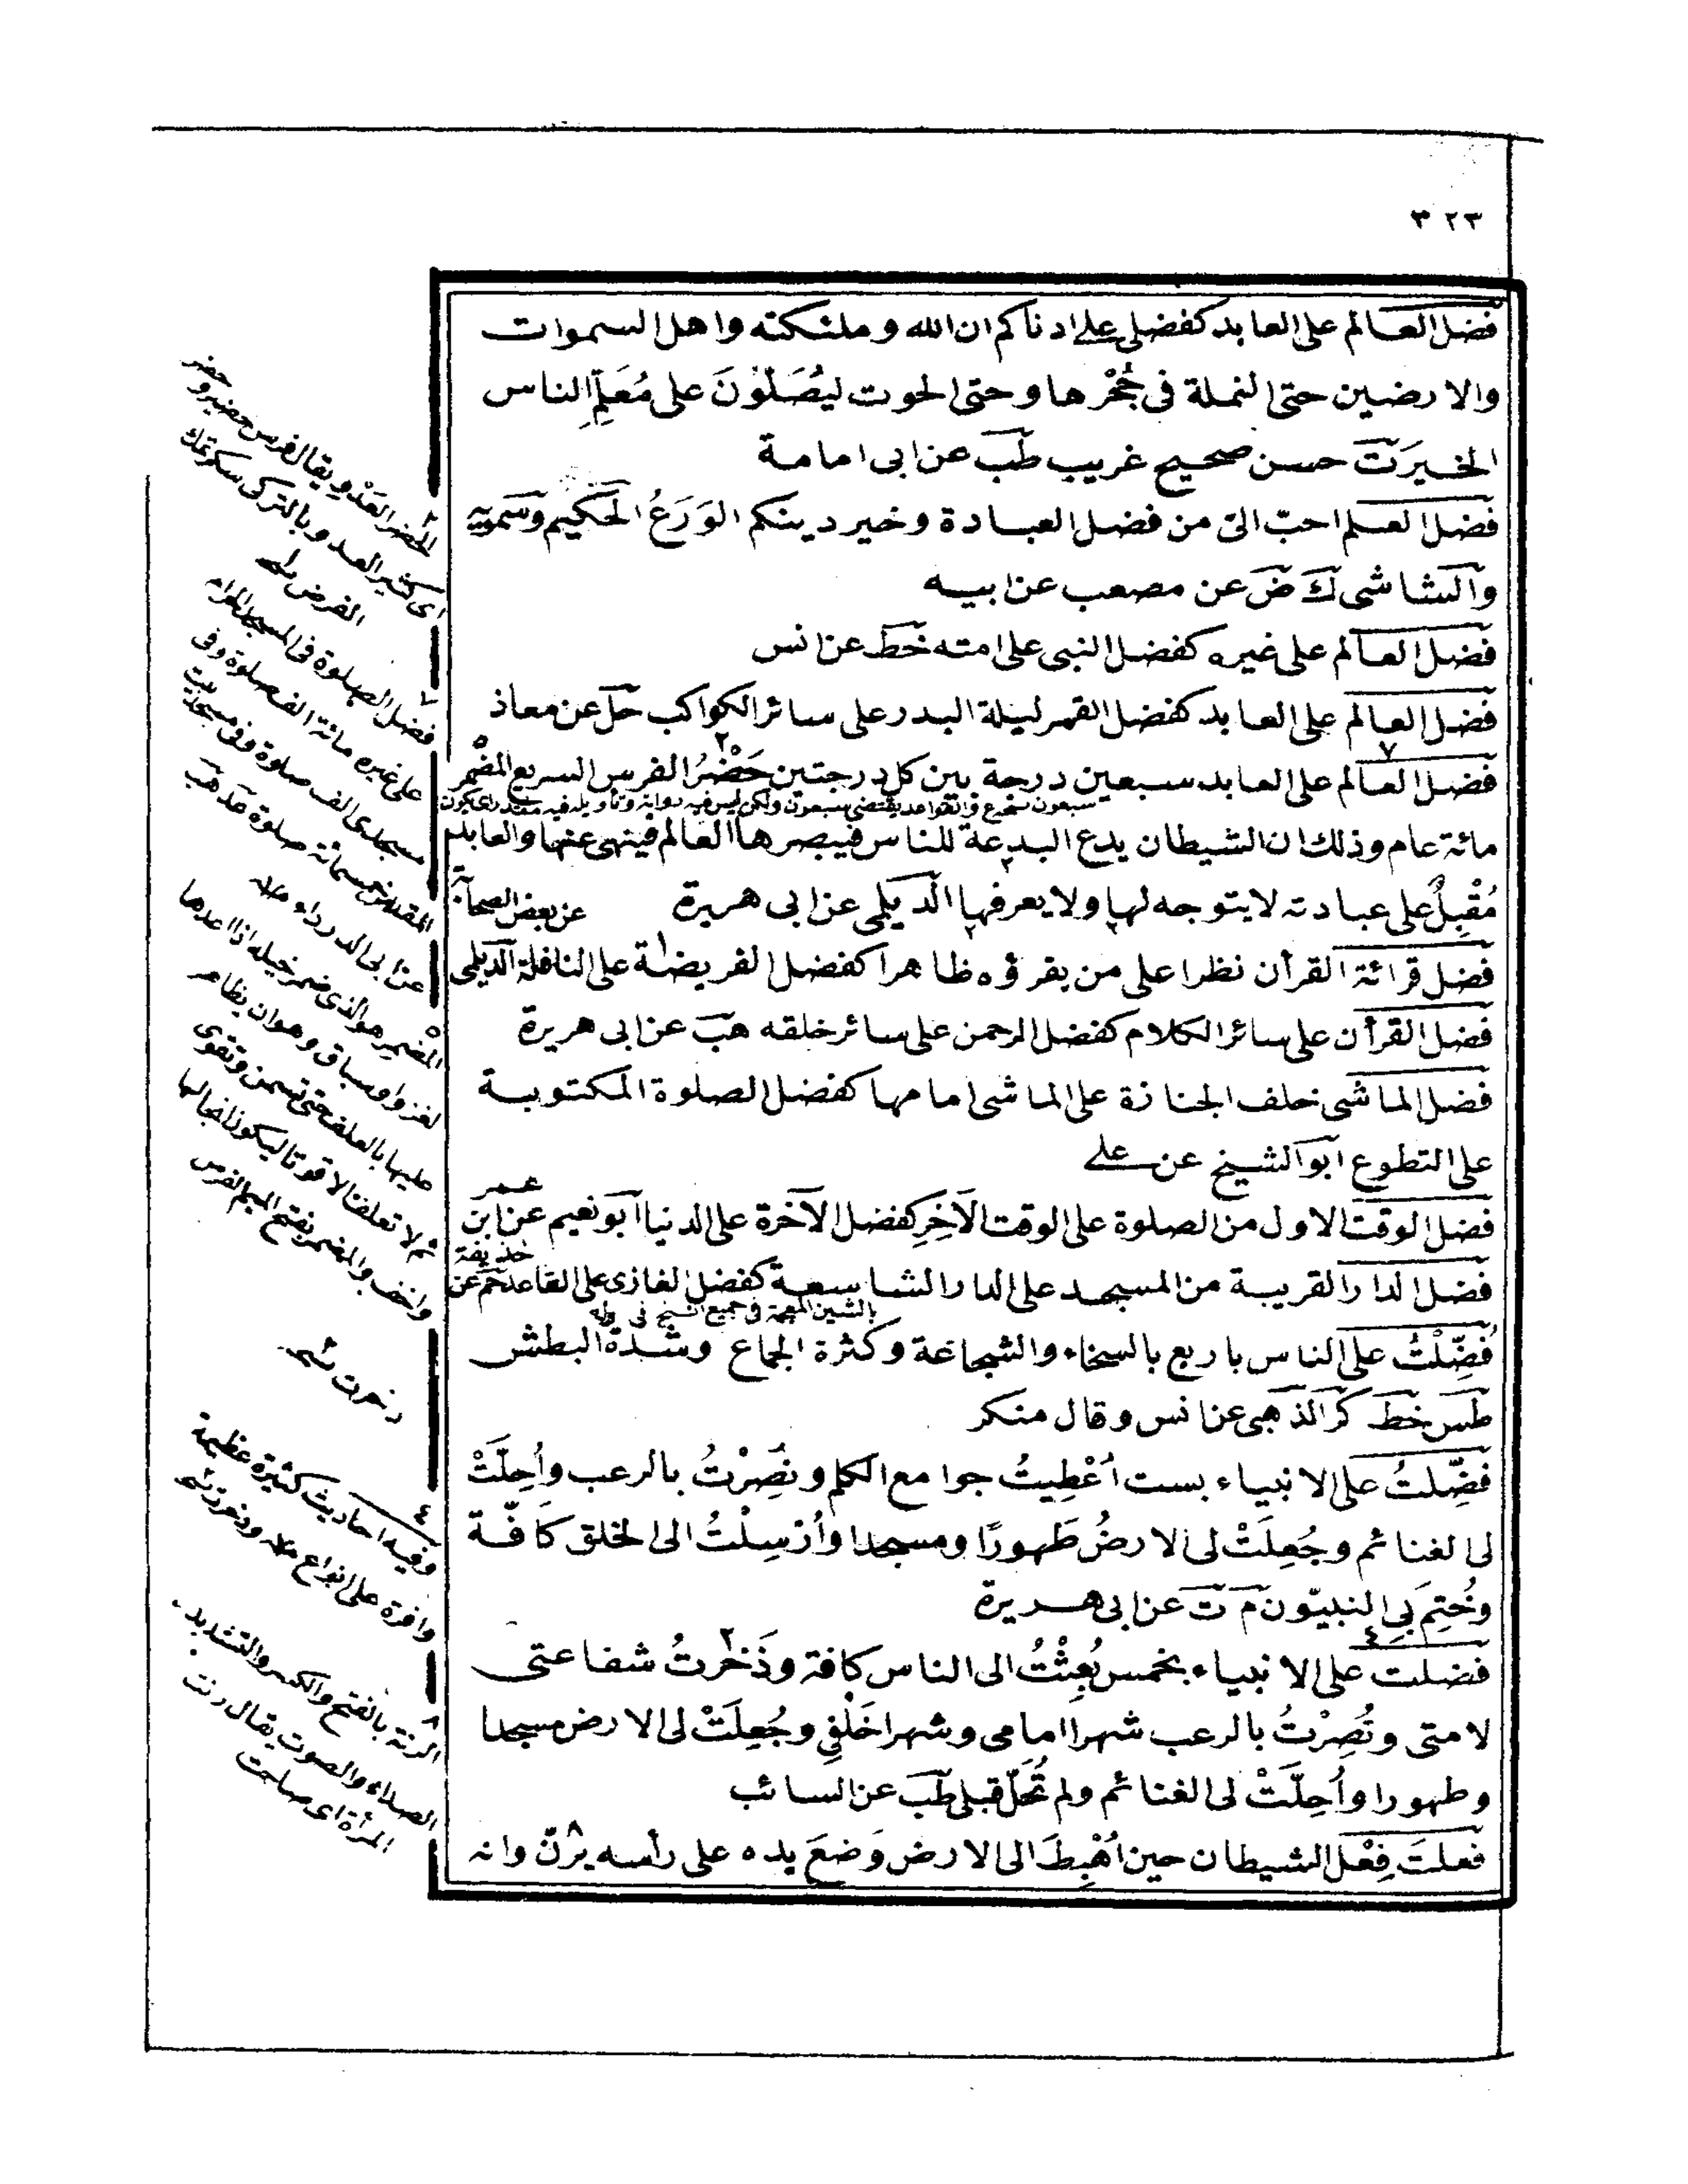 ٣٢٣
فضل العالم على العابد كفضلى على ادناكم ان الله وملئكته واهل السموات
والارضين حتى النملة فى جُحْرها وحتى الحوت ليُصَلّوُنَ على مُعَلِّمِ الناس
الخير تَ حسن صحيح غريب طَبَ عن ابى امامة
فضل العلم احبّ الىّ من فضل العبادة وخير دينكم الوَرَعُ الحكيم وسمويه
والشاشى كَ ضَ عن مصعب عن ابيه
فضل العالم على غيره كفضل النبى على امته خَط عن انس
فضل العالم على العابد كفضل القمر ليلة البدر على سائر الكواكب حَل عن معاذ
فضل العالم على العابد سبعين درجة بين كل درجتين حَضْرُ الفرس السريع المضمر
مائة عام وذلك ان الشيطان يدع البدعة للناس فيبصرها العالم فينهى عنها والعابد
مُقْبِلٌ على عبادته لا يتوجه لها ولا يعرفها الديلمى عن ابى هريرة
عن بعض الصحابة
فضل قرائة القرأن نظرا على من يقرؤه ظاهرا كفضل الفريضة على النافلة الديلمى
فضل القرأن على سائر الكلام كفضل الرحمن على سائر خلقه هَب عن ابى هريرة
فضل الماشى خلف الجنازة على الماشى امامها كفضل الصلوة المكتوبة
على التطوع ابو الشيخ عن على
فضل الوقت الاول من الصلوة على الوقت الآخِرِ كفضل الآخرة على الدنيا ابو نعيم عن ابن عمر
فضل الدار القريبة من المسجد على الدار الشاسعة كفضل الغازى على القاعد حَم عن حذيفة
بالشين المعجمة فى جميع النسخ
فُضِّلْتُ على الناس باربع بالسخاء والشجاعة وكثرة الجماع وشدة البطش
طَس خَط كَر الذهبى عن انس وقال منكر
فضِّلتُ على الانبياء بست اُعْطِيتُ جوامع الكلم ونُصِرْتُ بالرعب واُحِلّتْ
لى الغنائم وجُعِلَتْ لى الارضُ طَهورًا ومسجدا واُرْسِلْتُ الى الخلق كافّة
وخُتِمَ بِى النبيّون مَ تَ عن ابى هريرة
فضلت على الانبياء بخمس بُعِثْتُ الى الناس كافة وذَخَرتُ شفاعتى
لامتى ونُصِرْتُ بالرعب شهرا امامى وشهرا خَلْفِى وجُعِلَتْ لى الارض مسجدا
وطهورا واُحِلّتْ لى الغنائم ولم تُحَلّ قبلى طَب عن السائب
فعلتَ فِعْلَ الشيطان حين اُهْبِطَ الى الارض وَضعَ يده على رأسه يرنّ وانه
الحضر العَدْو ويقال فرس حضير
اى كثير العدو وبالتركى
فضل الصلوة فى المسجد الحرام
على غيره مائة الف صلوة وفى
مسجدى الف صلوة وفى مسجد بيت
المقدس خمسمائة صلوة
عن ابى الدرداء
المضمر هو الذى ضمر خيله اذا اعدها
لغزو او سباق وهو ان يظاهر
عليها بالعلف حتى تسمن وتقوى
ثم لا تعلف الا قوتا ليكون
واخف والمضمر بفتح الميم الفرس
٤
وفيه احاديث كثيرة عظيمة
وافرة على انواع
٨
الرنة بالفتح والكسر والتشديد
الصداء والصوت يقال رنت
المرأة اى صاحت